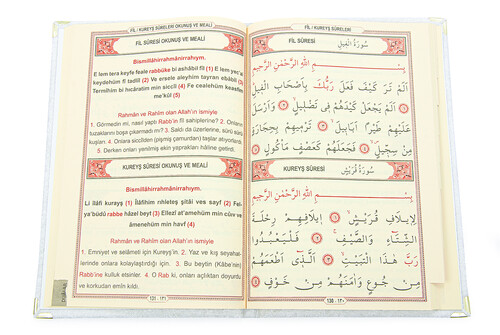 FİL / KUREYŞ SÛRELERİ OKUNUŞ VE MEALİ
FİL SÛRESİ OKUNUŞ VE MEALİ
Bismillâhirrahmânirrahıym.
E lem tera keyfe feale rabbüke bi ashâbil fîl (1) E lem yec'al
keydehüm fî tadlîl (2) Ve ersele aleyhim tayran ebâbîl (3)
Termîhim bi hıcâratim min siccîl (4) Fe cealehüm keasfim
me'kûl (5)
Rahmân ve Rahîm olan Allah'ın ismiyle
1. Görmedin mi, nasıl yaptı Rabb'in fil sahiplerine? 2. Onların
tuzaklarını boşa çıkarmadı mı? 3. Saldı da üzerlerine, sürü sürü
kuşları. 4. Onlara siccilden (pişmiş çamurdan) taşlar atıyorlardı.
5. Derken onları yenilmiş ekin yaprakları hâline getirdi.
KUREYŞ SÛRESİ OKUNUŞ VE MEALİ
Bismillâhirrahmânirrahıym.
Li îlâfi kurayş (1) Îlâfihim rihleteş şitâi ves sayf (2) Fel-
ya'büdû rabbe hâzel beyt (3) Ellezî at'amehüm min cûıv ve
âmenehüm min havf (4)
Rahmân ve Rahîm olan Allah'ın ismiyle
1. Emniyet ve selameti için Kureyş'in. 2. Yaz ve kış seyahat-
lerinde onlara kolaylaştırdığı için 3. Bu beytin (Kâbe'nin)
Rabb'ine kulluk etsinler. 4. O Rab ki, onları açlıktan doyurdu
ve korkudan emîn kıldı.
131 - ١٣١
FİL / KUREYŞ SÛRELERİ
FİL SÛRESİ سُورَةُ الْفِيلِ
بِسْمِ اللّٰهِ الرَّحْمٰنِ الرَّحِيمِ
اَلَمْ تَرَ كَيْفَ فَعَلَ رَبُّكَ بِاَصْحَابِ الْفِيلِ ﴿١﴾
اَلَمْ يَجْعَلْ كَيْدَهُمْ فِي تَضْلِيلٍ ﴿٢﴾ وَاَرْسَلَ
عَلَيْهِمْ طَيْرًا اَبَابِيلَ ﴿٣﴾ تَرْمِيهِمْ بِحِجَارَةٍ
مِنْ سِجِّيلٍ ﴿٤﴾ فَجَعَلَهُمْ كَعَصْفٍ مَأْكُولٍ ﴿٥﴾
KUREYŞ SÛRESİ سُورَةُ قُرَيْشٍ
بِسْمِ اللّٰهِ الرَّحْمٰنِ الرَّحِيمِ
لِاِيلَافِ قُرَيْشٍ ﴿١﴾ اِيلَافِهِمْ رِحْلَةَ
الشِّتَاءِ وَالصَّيْفِ ﴿٢﴾ فَلْيَعْبُدُوا
رَبَّ هٰذَا الْبَيْتِ ﴿٣﴾ اَلَّذِي اَطْعَمَهُمْ
مِنْ جُوعٍ وَاٰمَنَهُمْ مِنْ خَوْفٍ ﴿٤﴾
130 - ١٣٠